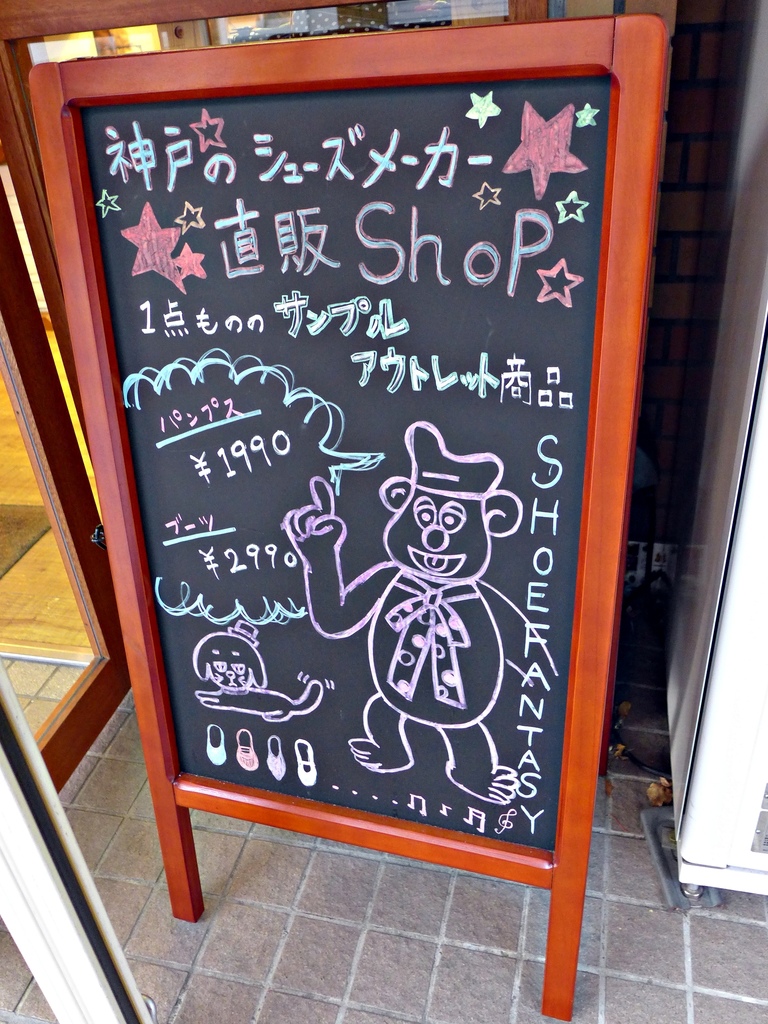 神戸のシューズメーカー
直販ShoP
1点ものの サンプル
アウトレット商品
パンプス
¥1990
ブーツ
¥2990
SHOEFANTASY